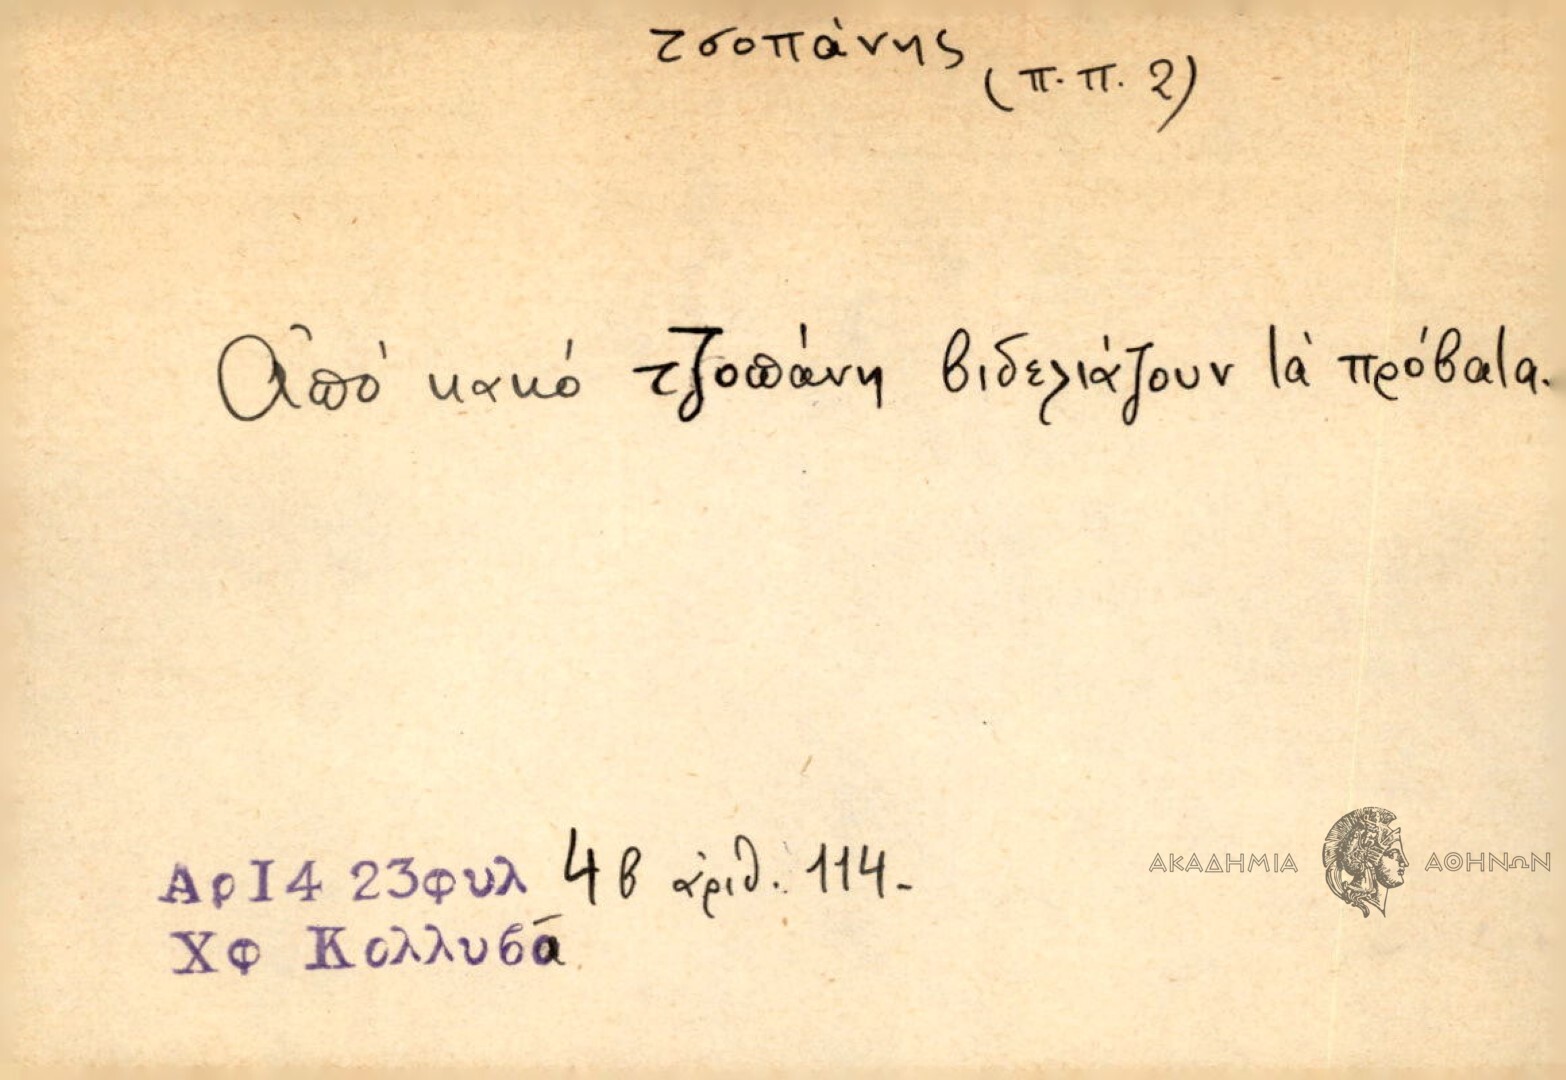 τσοπάνης
(π.π. 2)
Ἀπό κακό τζοπάνη βιδελιάζουν τὰ πρόβατα.
Αρ14 23φυλ 4β ἀριθ. 114.-
Χφ Κολλυβᾶ
ΑΚΑΔΗΜΙΑ ΑΘΗΝΩΝ